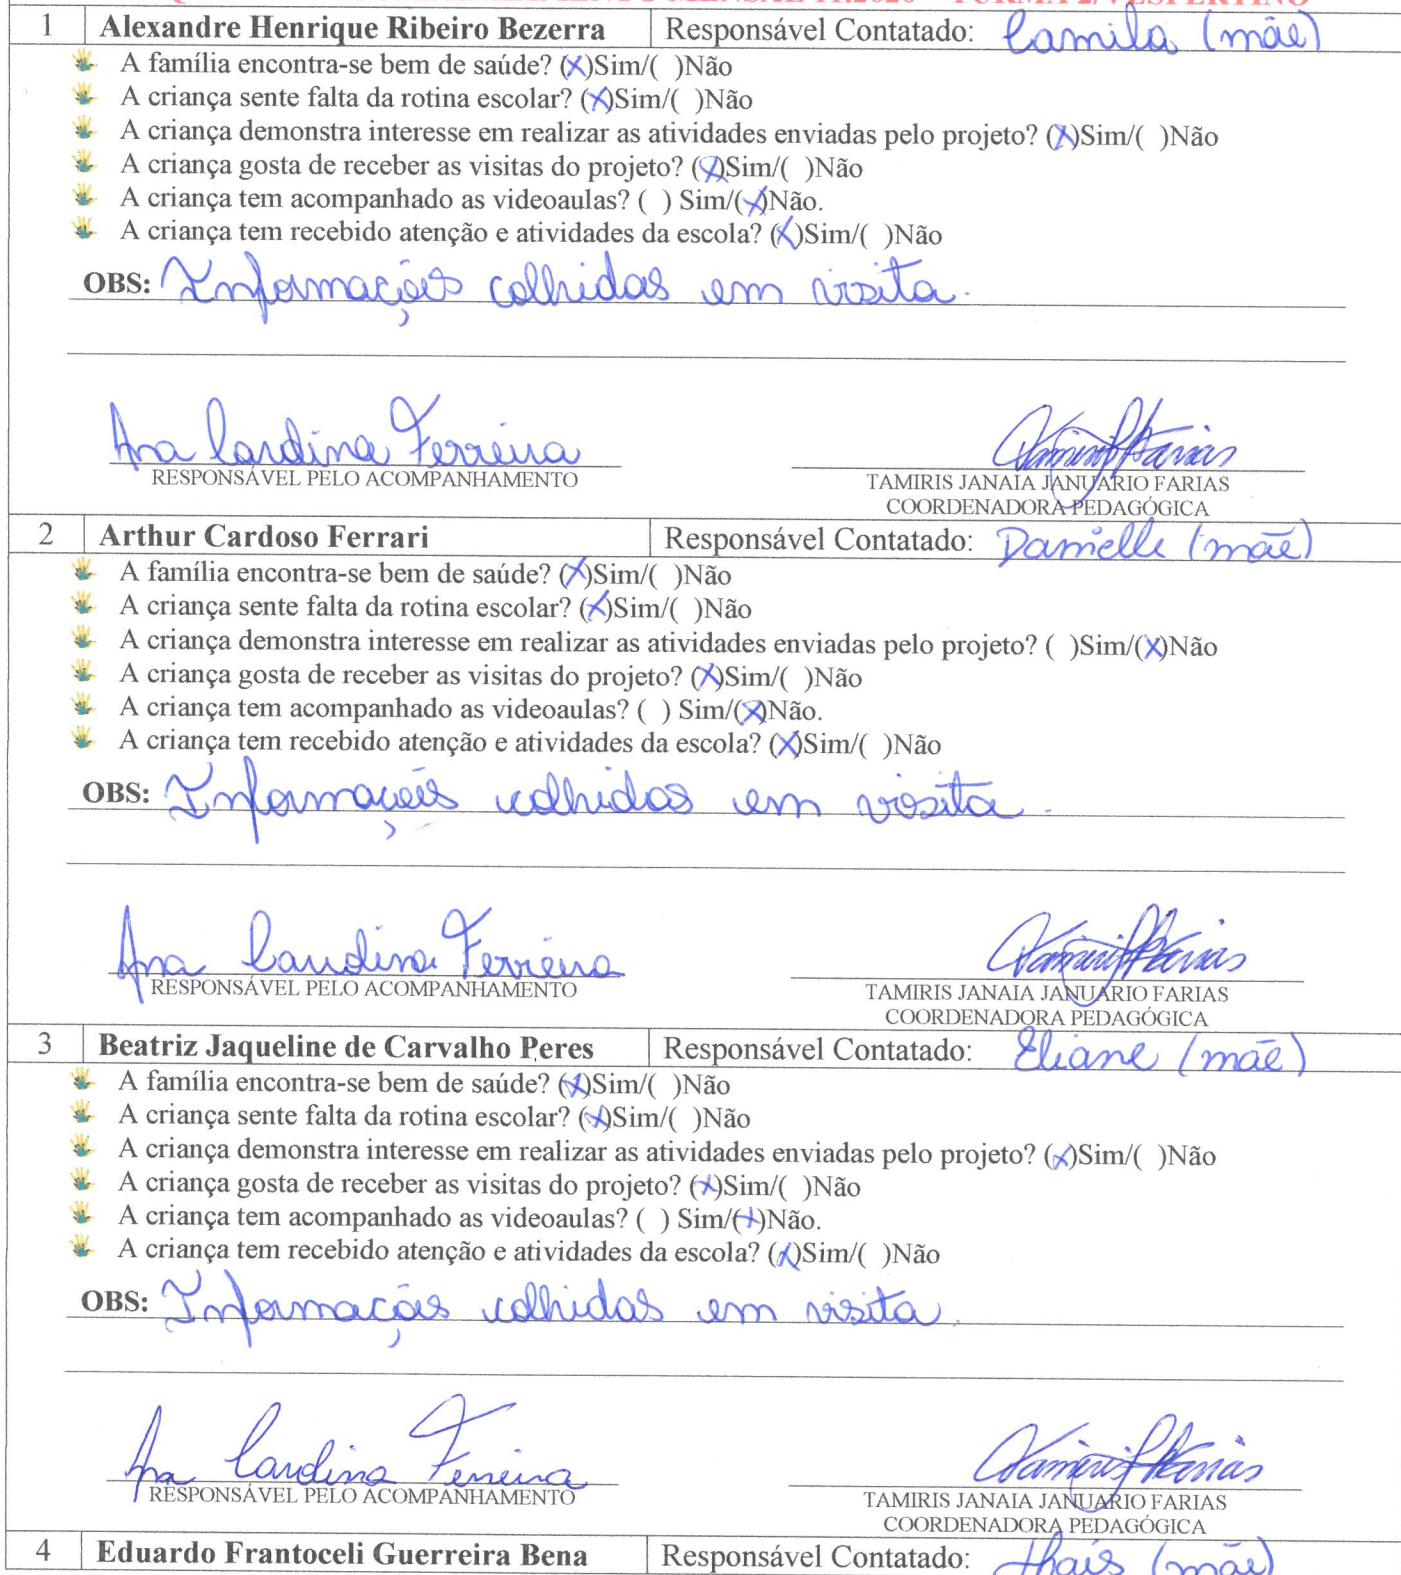 MENSAL 11.2020 – TURMA 2/VESPERTINO
1 Alexandre Henrique Ribeiro Bezerra Responsável Contatado: Camila (mãe)
A família encontra-se bem de saúde? (X)Sim/( )Não
A criança sente falta da rotina escolar? (X)Sim/( )Não
A criança demonstra interesse em realizar as atividades enviadas pelo projeto? (X)Sim/( )Não
A criança gosta de receber as visitas do projeto? (X)Sim/( )Não
A criança tem acompanhado as videoaulas? ( ) Sim/(X)Não.
A criança tem recebido atenção e atividades da escola? (X)Sim/( )Não
OBS: Informações colhidas em visita.
Ana Carolina Ferreira
RESPONSÁVEL PELO ACOMPANHAMENTO
TAMIRIS JANAIA JANUARIO FARIAS
COORDENADORA PEDAGÓGICA
2 Arthur Cardoso Ferrari Responsável Contatado: Danielle (mãe)
A família encontra-se bem de saúde? (X)Sim/( )Não
A criança sente falta da rotina escolar? (X)Sim/( )Não
A criança demonstra interesse em realizar as atividades enviadas pelo projeto? ( )Sim/(X)Não
A criança gosta de receber as visitas do projeto? (X)Sim/( )Não
A criança tem acompanhado as videoaulas? ( ) Sim/(X)Não.
A criança tem recebido atenção e atividades da escola? (X)Sim/( )Não
OBS: Informações colhidas em visita.
Ana Carolina Ferreira
RESPONSÁVEL PELO ACOMPANHAMENTO
TAMIRIS JANAIA JANUARIO FARIAS
COORDENADORA PEDAGÓGICA
3 Beatriz Jaqueline de Carvalho Peres Responsável Contatado: Eliane (mãe)
A família encontra-se bem de saúde? (X)Sim/( )Não
A criança sente falta da rotina escolar? (X)Sim/( )Não
A criança demonstra interesse em realizar as atividades enviadas pelo projeto? (X)Sim/( )Não
A criança gosta de receber as visitas do projeto? (X)Sim/( )Não
A criança tem acompanhado as videoaulas? ( ) Sim/(X)Não.
A criança tem recebido atenção e atividades da escola? (X)Sim/( )Não
OBS: Informações colhidas em visita.
Ana Carolina Ferreira
RESPONSÁVEL PELO ACOMPANHAMENTO
TAMIRIS JANAIA JANUARIO FARIAS
COORDENADORA PEDAGÓGICA
4 Eduardo Frantoceli Guerreira Bena Responsável Contatado: Thais (mãe)